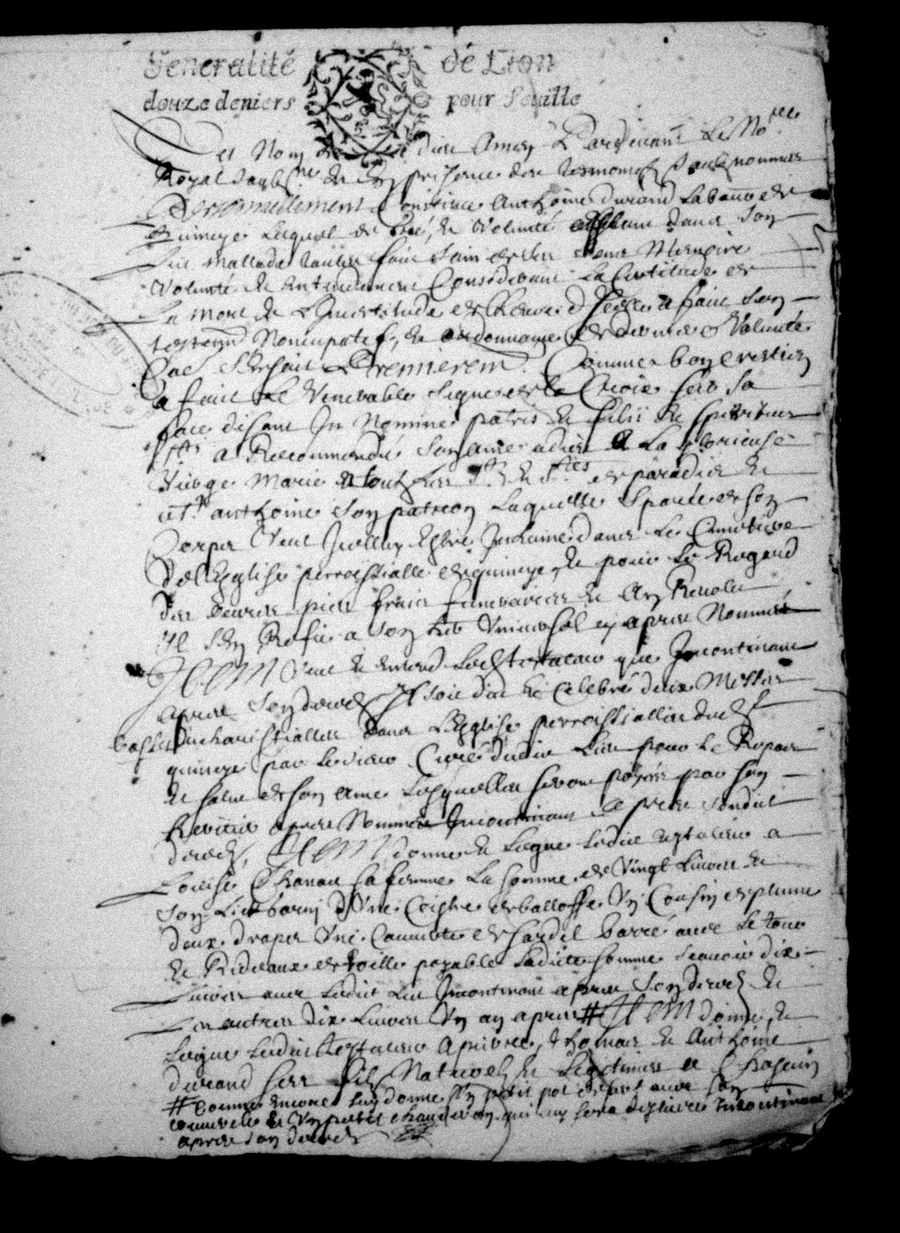 Generalité de Lion
douze deniers pour feuille
Au Nom de Dieu Amen Pardevant Le No.re
Royal soub.né et en presence des tesmoins soubz nommes
Personnellement Constitué Anthoine durand Laboure de
quimeye Lequel de gré, et Volunté estant dans son
Lict mallade toutes fois sain de ses sens Memoire
Volunté et Entendement Considerant La Certitude de
La mort et L'Incertitude de L'heure d'Icelle a faict son
testam.t Noncupatif, et ordonnance de derniere Volunté
Comme s'ensuit Premierem.t Comme bon Crestien
a faict Le Venerable signe de la Croix sur sa
face disant In Nomine patris et filii et spiritus
s.ti a Recommandé son ame a dieu A La glorieuse
Vierge Marie A touts les S.ts et S.tes de paradis et
a S.t anthoine son patron Laquelle separée de son
Corps Veut Icelluy Estre Inhumé dans Le Cimetiere
de l'Eglise perrochialle de quimeye, et pour Le Regard
des oeuvres pies frais funeraires et
Il s'en Refie a son her. Universel cy apres Nommé
ITEM Veut et Entend Ledit testateur que Incontinant
apres son deces Il soit dict et Celebré deux Messes
basses Eucharistialles dans L'Eglise perrochialle dudict
quimeye par Le sieur Curé dudit Lieu pour Le Repos
et salut de son ame Lesquelles seront payées par son
heritier apres Nommé Incontinant apres sondict
deces, ITEM donne et Legue Ledit testateur a
Loeuise Chanau sa femme La somme de Vingt Livres et
son Lict garni d'une Coistre de balloffe Un Cousin de plume
deux draps Une Couverte de sardil barré avec Le tour
de Rideaux de toille payable Ladicte somme scavoir dix
Livres avec Ledict Lict Incontinant apres son deces et
Les autres dix Livres Un an apres # ITEM donne et
Legue Ledict testateur A pierre, thomas et Anthoine
durand ses fils Naturels et Legitimes a Chascun
# Comme Encores Luy donne Un petit pot de fert avec son
couvercle et Un petit chauderon qui luy sera delivré Incontinant
apres son deces